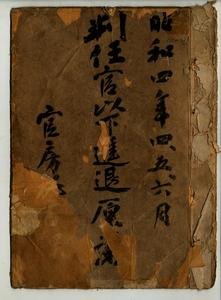 昭和四年四、五、六月
判任官以下進退原議
官房